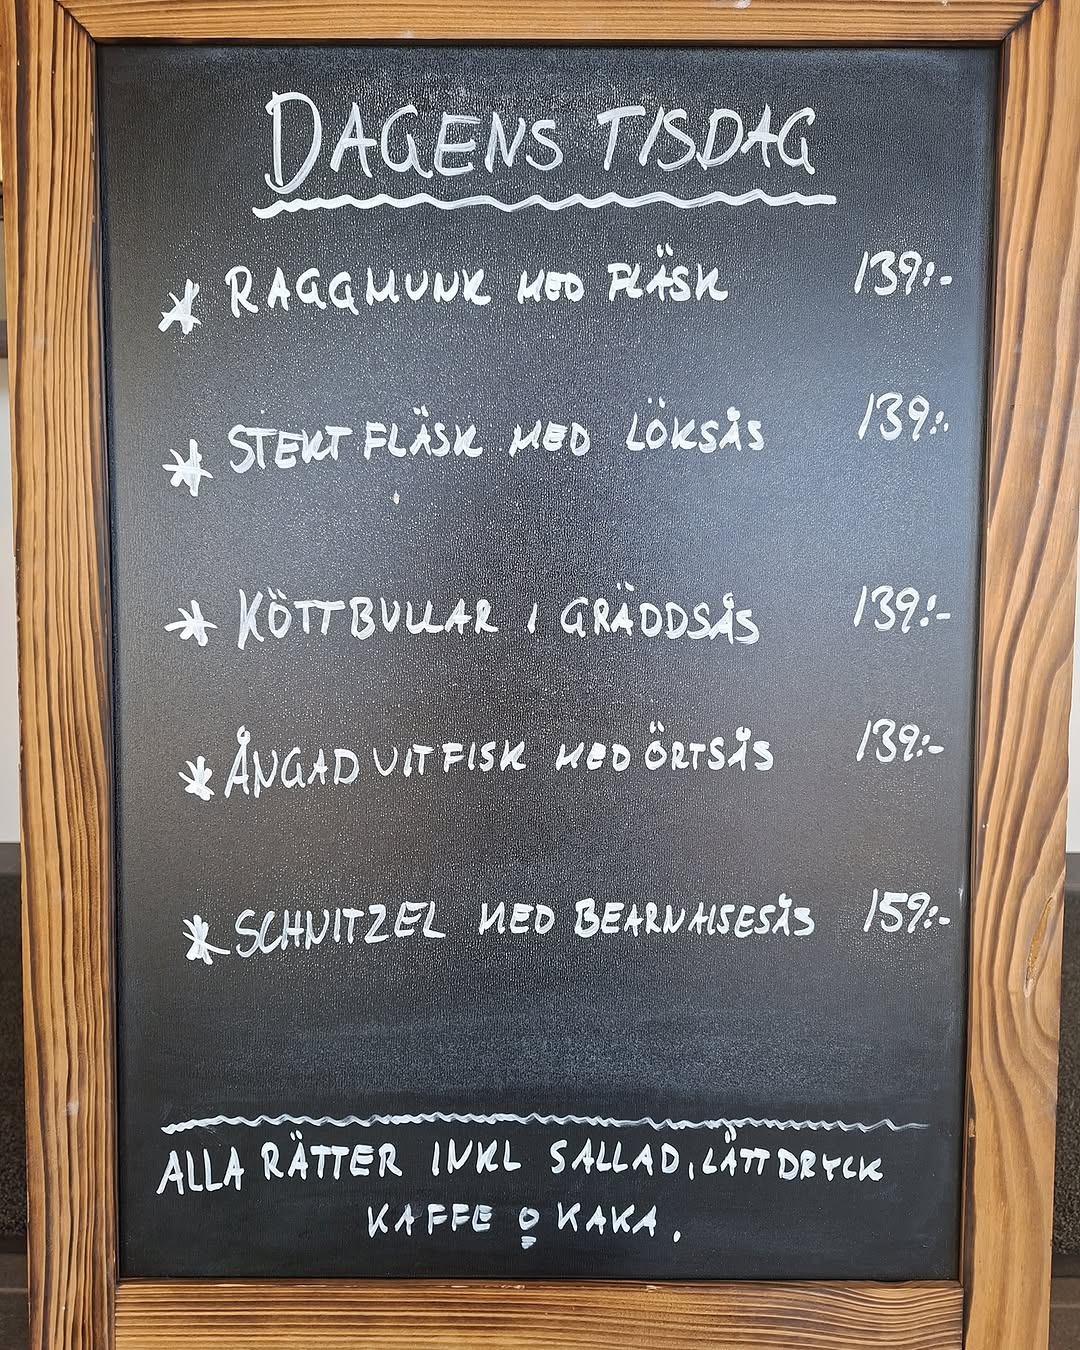 DAGENS TISDAG
* RAGGMUNK MED FLÄSK 139:-
* STEKT FLÄSK MED LÖKSÅS 139:-
* KÖTTBULLAR I GRÄDDSÅS 139:-
* ÅNGAD VITFISK MED ÖRTSÅS 139:-
* SCHNITZEL MED BEARNAISESÅS 159:-
ALLA RÄTTER INKL SALLAD, LÄTTDRYCK
KAFFE O KAKA.